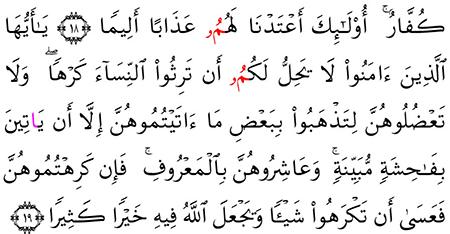 كُفَّارٌ ۚ أُوْلَـٰٓئِكَ أَعْتَدْنَا لَهُمُۥ عَذَابًا أَلِيمًا ﴿١٨﴾ يَـٰٓأَيُّهَا
ٱلَّذِينَ ءَامَنُوا۟ لَا يَحِلُّ لَكُمُۥ أَن تَرِثُوا۟ ٱلنِّسَآءَ كَرْهًا ۖ وَلَا
تَعْضُلُوهُنَّ لِتَذْهَبُوا۟ بِبَعْضِ مَا ءَاتَيْتُمُوهُنَّ إِلَّآ أَن يَاتِينَ
بِفَـٰحِشَةٍ مُّبَيِّنَةٍ ۚ وَعَاشِرُوهُنَّ بِٱلْمَعْرُوفِ ۚ فَإِن كَرِهْتُمُوهُنَّ
فَعَسَىٰٓ أَن تَكْرَهُوا۟ شَيْـًٔا وَيَجْعَلَ ٱللَّهُ فِيهِ خَيْرًا كَثِيرًا ﴿١٩﴾